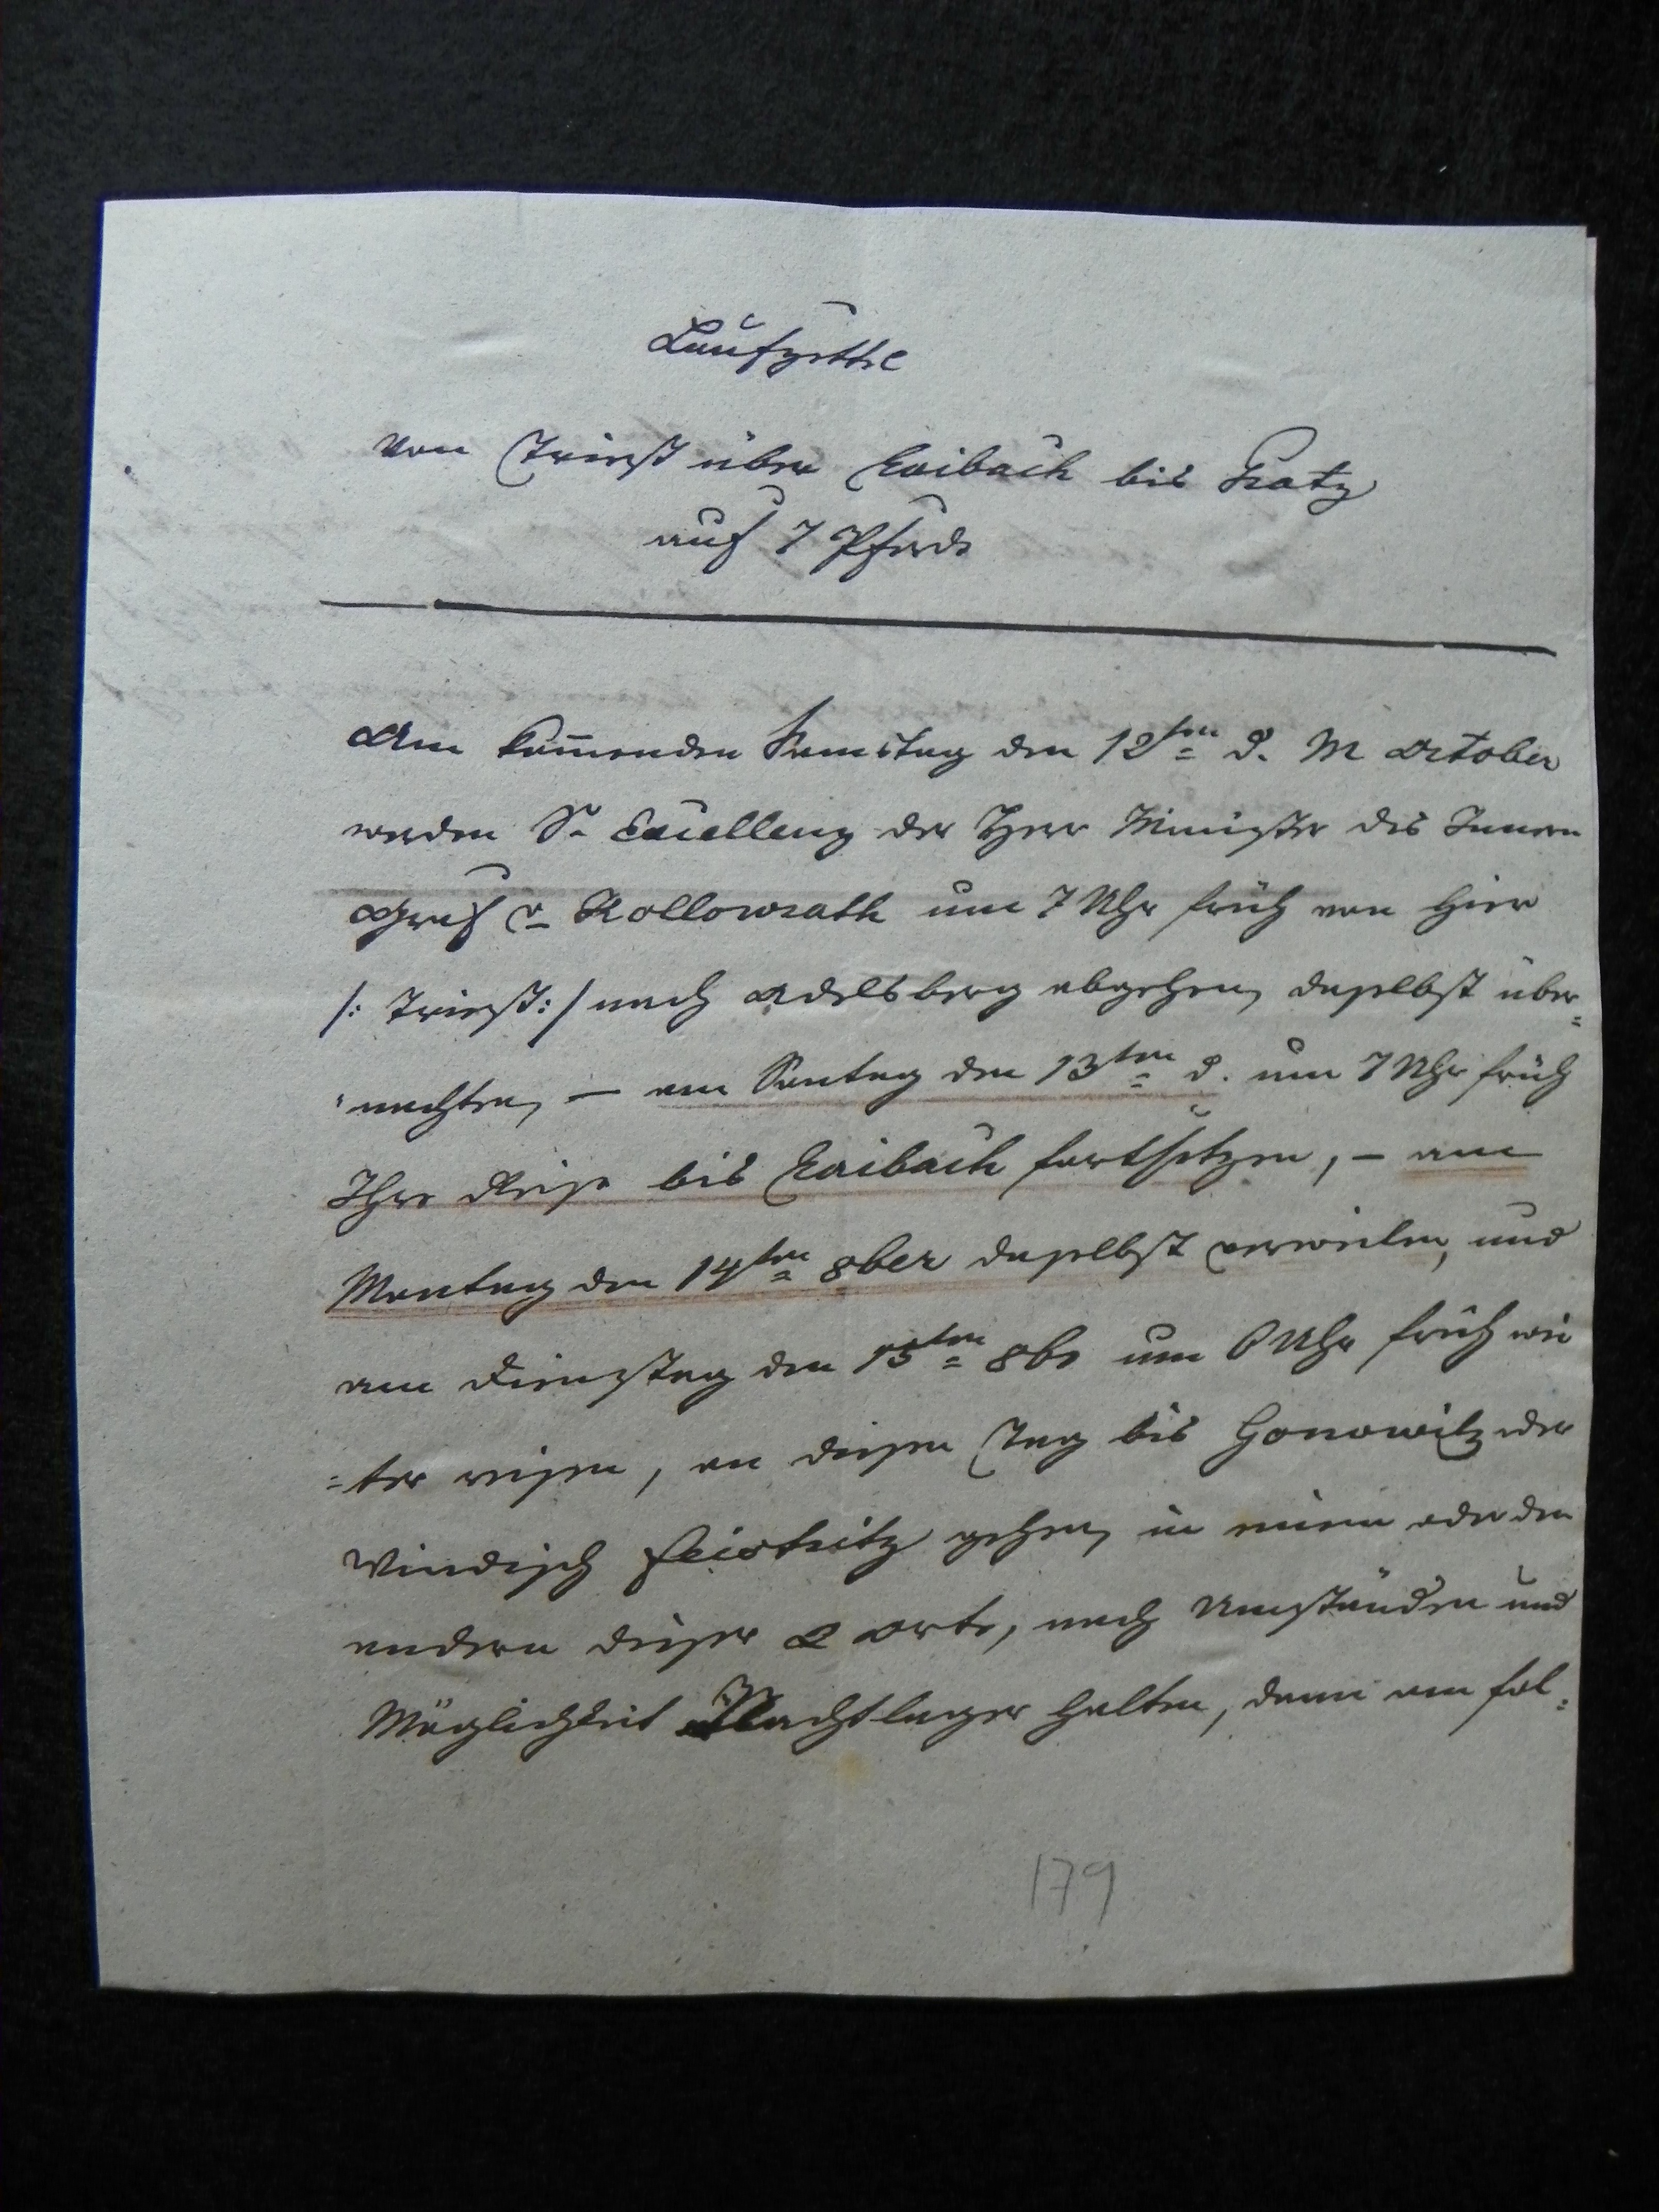 Laufzettel
Von Triest über Laibach bis Gratz
auf 7 Pferde
Am kom̄enden Samstag den 12ten d. M October
werden Sr Excellenz der Herr Minister des Innern
Graf v. Kollowrath um 7 Uhr früh von hier
/: Triest :/ nach Adelsberg abgehen, daselbst über=
=nachten, – am Sontag den 13ten d. um 7 Uhr früh
Ihre Reise bis Laibach fortsetzen, – am
Montag den 14ten 8ber daselbst verweilen, und
am Dienstag den 15ten 8br um 6 Uhr früh wei
=ter reisen, an diesen Tag bis Gonowitz oder
Windisch Feistritz gehen, in einem oder den
andern dieser 2 Orte, nach Umständen und
Möglichkeit Nachtlager halten, dann am fol=
179